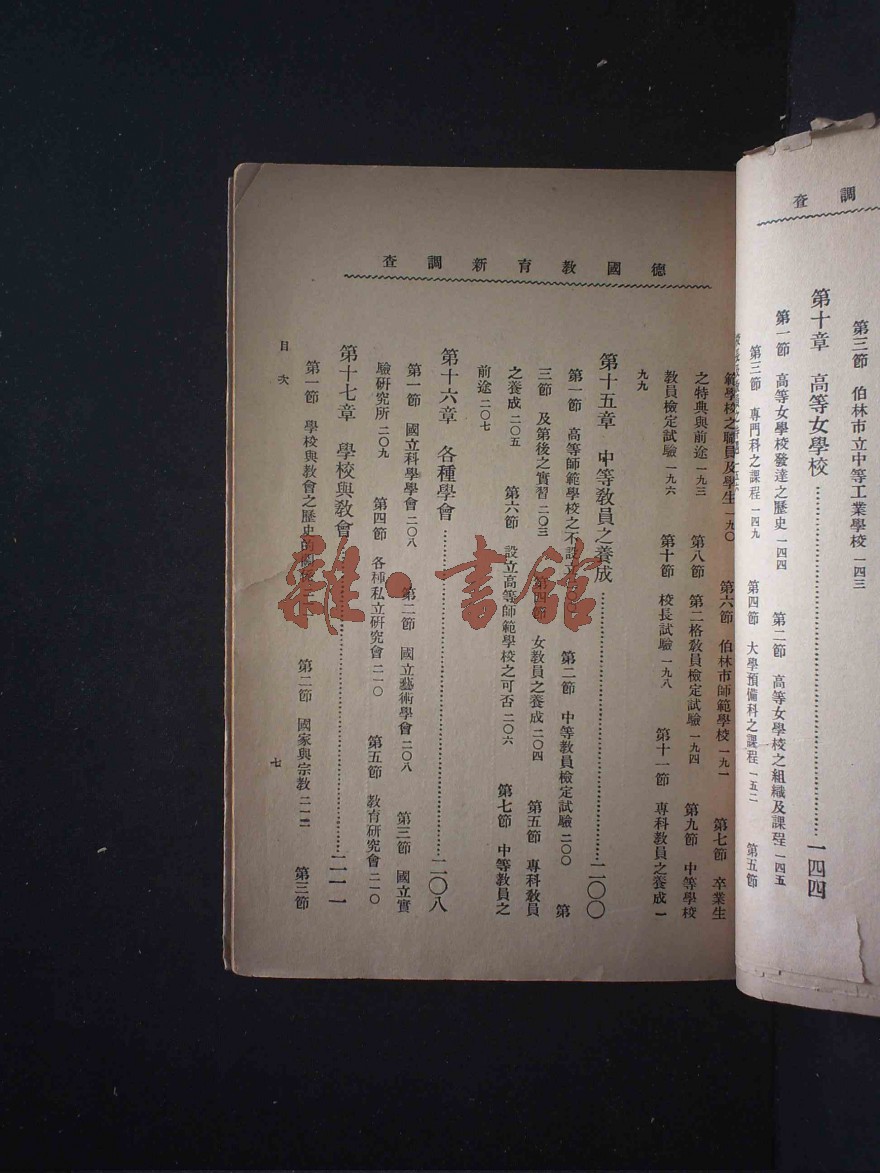 調查
第三節 伯林市立中等工業學校 一四三
第十章 高等女學校 一四四
第一節 高等女學校發達之歷史 一四四 第二節 高等女學校之組織及課程 一四五
第三節 專門科之課程 一四九 第四節 大學預備科之課程 一五二 第五節
德國教育新調查
範學校之職員及學生 一九〇 第六節 伯林市師範學校 一九一 第七節 卒業生
之特典與前途 一九三 第八節 第二格教員檢定試驗 一九四 第九節 中等學校
教員檢定試驗 一九六 第十節 校長試驗 一九八 第十一節 專科教員之養成 一
九九
第十五章 中等教員之養成 二〇〇
第一節 高等師範學校之不設立 第二節 中等教員檢定試驗 二〇〇 第
三節 及第後之實習 二〇三 第四節 女教員之養成 二〇四 第五節 專科教員
之養成 二〇五 第六節 設立高等師範學校之可否 二〇六 第七節 中等教員之
前途 二〇七
第十六章 各種學會 二〇八
第一節 國立科學學會 二〇八 第二節 國立藝術學會 二〇八 第三節 國立實
驗研究所 二〇九 第四節 各種私立研究會 二一〇 第五節 教育研究會 二一〇
第十七章 學校與教會 二一一
第一節 學校與教會之歷史的 第二節 國家與宗教 二一二 第三節
目次
七
雜·書館